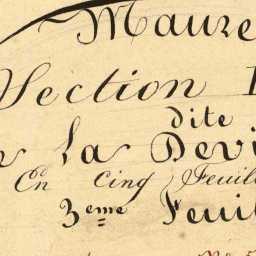 Maure
Section
dite
La Devi
En Cinq Feuill
3eme Feuil